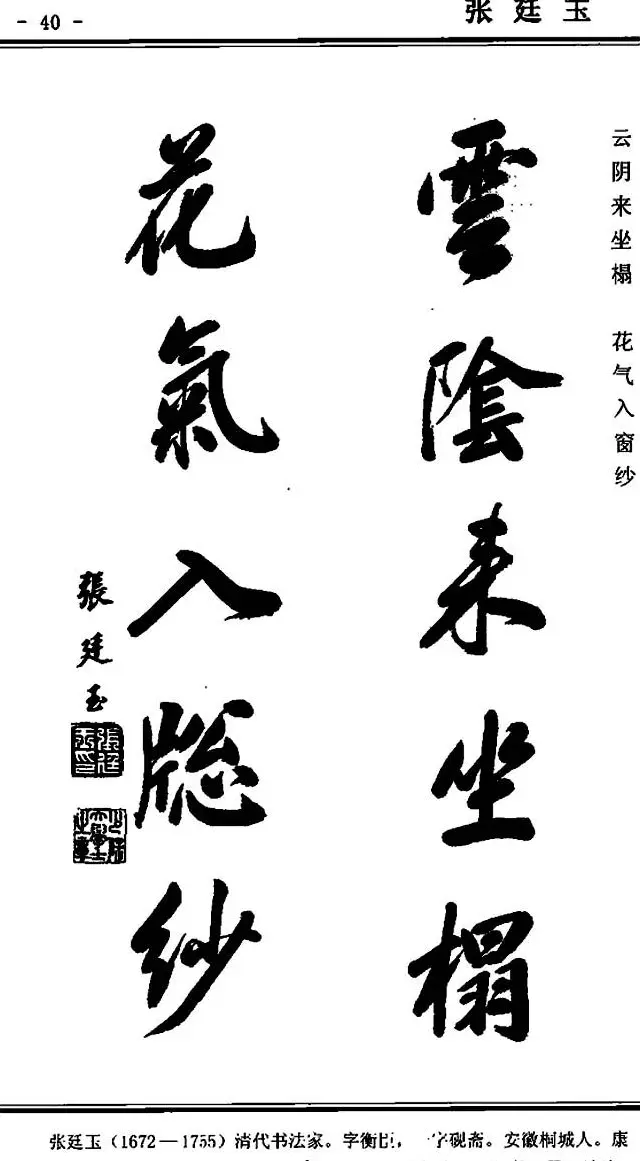 - 40 -
张廷玉
云阴来坐榻 花气入窗纱
雲陰来坐榻
花氣入牕紗
張廷玉
张廷玉（1672—1755）清代书法家。字衡臣，一字砚斋。安徽桐城人。康